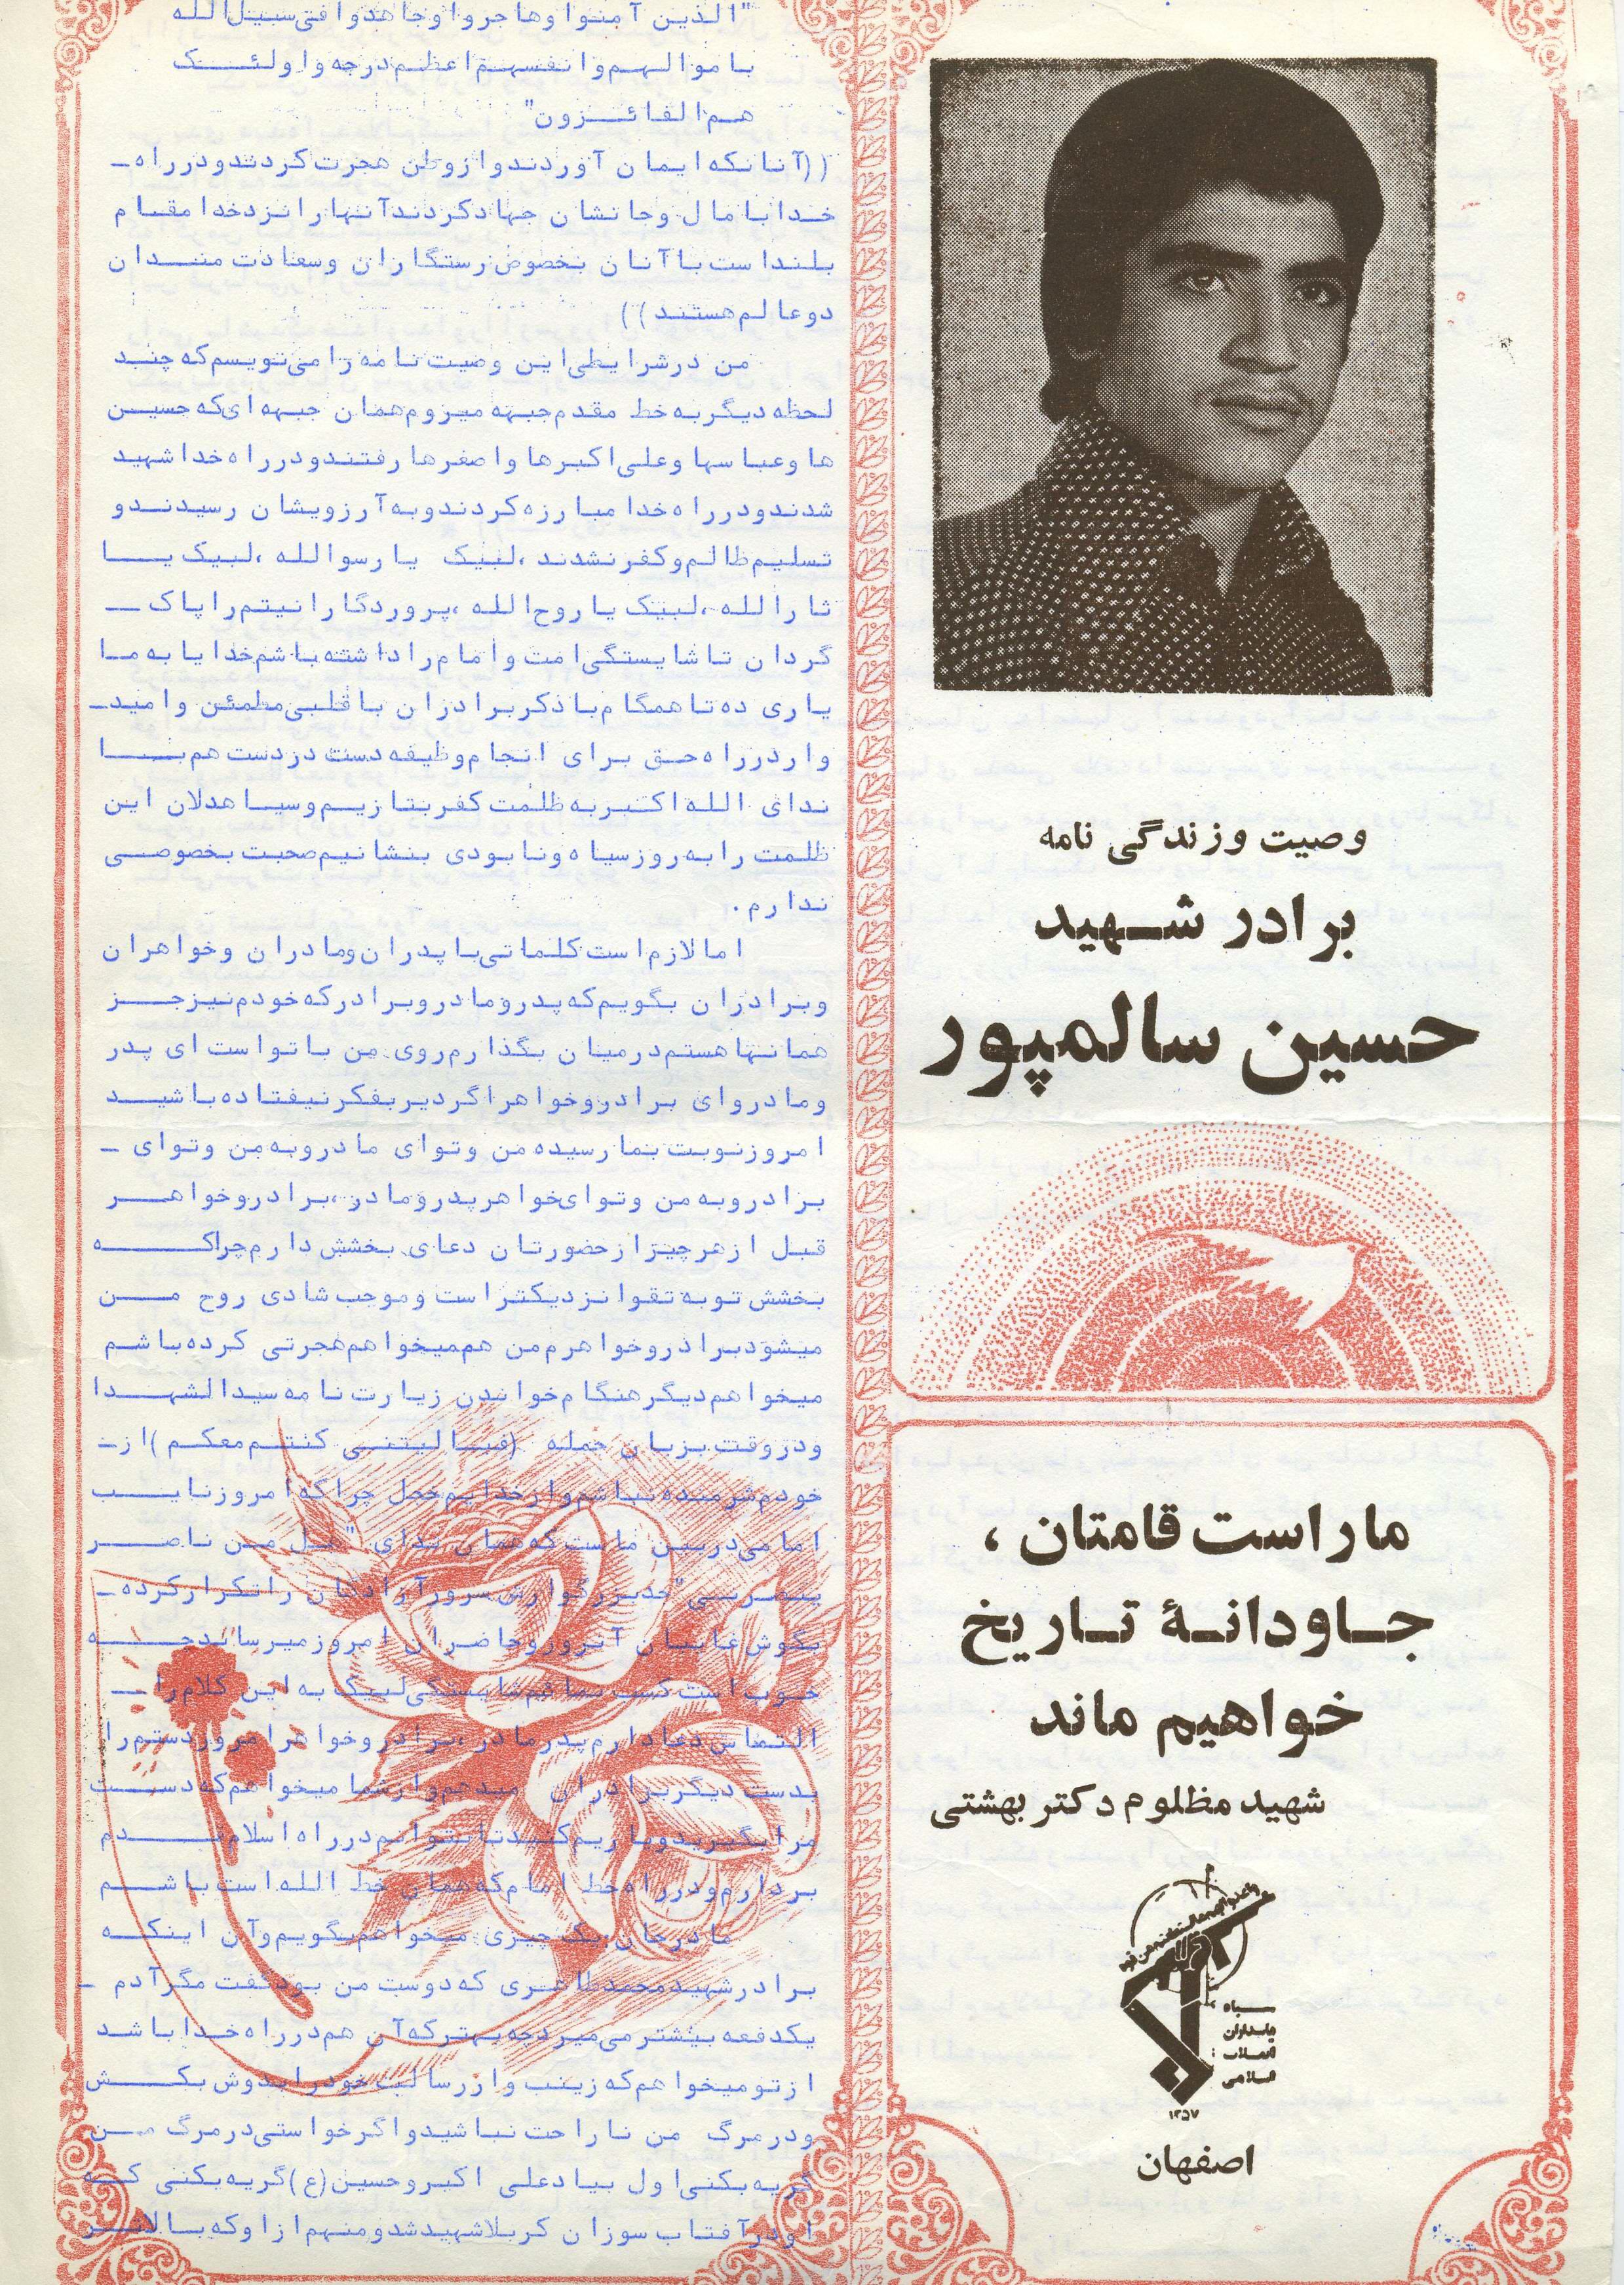 وصیت و زندگی نامه
برادر شهید
حسین سالمپور
ما راست قامتان ،
جاودانهٔ تاریخ
خواهیم ماند
شهید مظلوم دکتر بهشتی
سپاه
پاسداران
انقلاب
اسلامی
۱۳۵۷
اصفهان
"الذین آمنوا وهاجروا وجاهدوا فی سبیل الله
باموالهم وانفسهم اعظم درجه واولئک
هم الفائزون"
((آنانکه ایمان آوردند و از وطن هجرت کردند و در راه
خدا با مال و جانشان جهاد کردند آنها را نزد خدا مقام
بلند است با آنان بخصوص رستگاران و سعادت مندان
دو عالم هستند))
من در شرایطی این وصیت نامه را می نویسم که چند
لحظه دیگر به خط مقدم جبهه میروم همان جبهه ای که حسین
ها و عباسها و علی اکبرها و اصغرها رفتند و در راه خدا شهید
شدند و در راه خدا مبارزه کردند و به آرزویشان رسیدند و
تسلیم ظالم و کفر نشدند ، لبیک یا رسوالله ، لبیک یا
ثارالله ، لبیک یا روح الله ، پروردگارا نیتم را پاک
گردان تا شایستگی امت و امام را داشته باشم خدایا به ما
یاری ده تا همگام با ذکر برادران با قلبی مطمئن و امید
وار در راه حق برای انجام وظیفه دست در دست هم با
ندای الله اکبر به ظلمت کفر بتازیم و سیاهدلان این
ظلمت را به روز سیاه و نابودی بنشانیم صحبت بخصوصی
ندارم .
اما لازم است کلماتی با پدران و مادران و خواهران
و برادران بگویم که پدر و مادر و برادر که خودم نیز جز
همانها هستم در میان بگذارم روی من با تو است ای پدر
و مادر و ای برادر و خواهر اگر دیر بفکر نیفتاده باشید
امروز نوبت بما رسیده من و تو ای مادر و به من و تو ای
برادر و به من و تو ای خواهر پدر و مادر ، برادر و خواهر
قبل از هر چیز از حضورتان دعای بخشش دارم چرا که
بخشش تو به تقوا نزدیکتر است و موجب شادی روح من
میشود برادر و خواهرم من هم میخواهم هجرتی کرده باشم
میخواهم دیگر هنگام خواندن زیارت نامه سید الشهدا
و در وقت بزبان جمله (فیالیتنی کنتم معکم) از
خودم شرمنده نباشم و از خدایم خجل چرا که امروز نایب
امامی در بین ماست که همان ندای "هل من ناصر
ینصرنی" جد بزرگوارش سرور آزادگان را تکرار کرده
بگوش غایبان آنروز و حاضران امروز میرساند چه
خوب است کسب نماهم شایستگی لبیک به این کلام را
التماس دعا دارم پدر مادر ، برادر و خواهر امروز دستم را
بدست دیگر برادران میدهم و از شما میخواهم که دست
مرا بگیرید و یاریم کنید تا بتوانم در راه اسلام قدم
بردارم و در راه خط امام که همان خط الله است باشم
مادر جان یک چیزی میخواهم بگویم و آن اینکه
برادر شهید محمد طاهری که دوست من بود گفت مگر آدم
یکدفعه بیشتر می میرد چه بهتر که آن هم در راه خدا باشد
از تو میخواهم که زینب وار رسالت خود را بدوش بکش
و در مرگ من ناراحت نباشید و اگر خواستی در مرگ من
گریه بکنی اول بیاد علی اکبر و حسین (ع) گریه بکنی که
او در آفتاب سوزان کربلا شهید شد و منهم از او که بالاتر